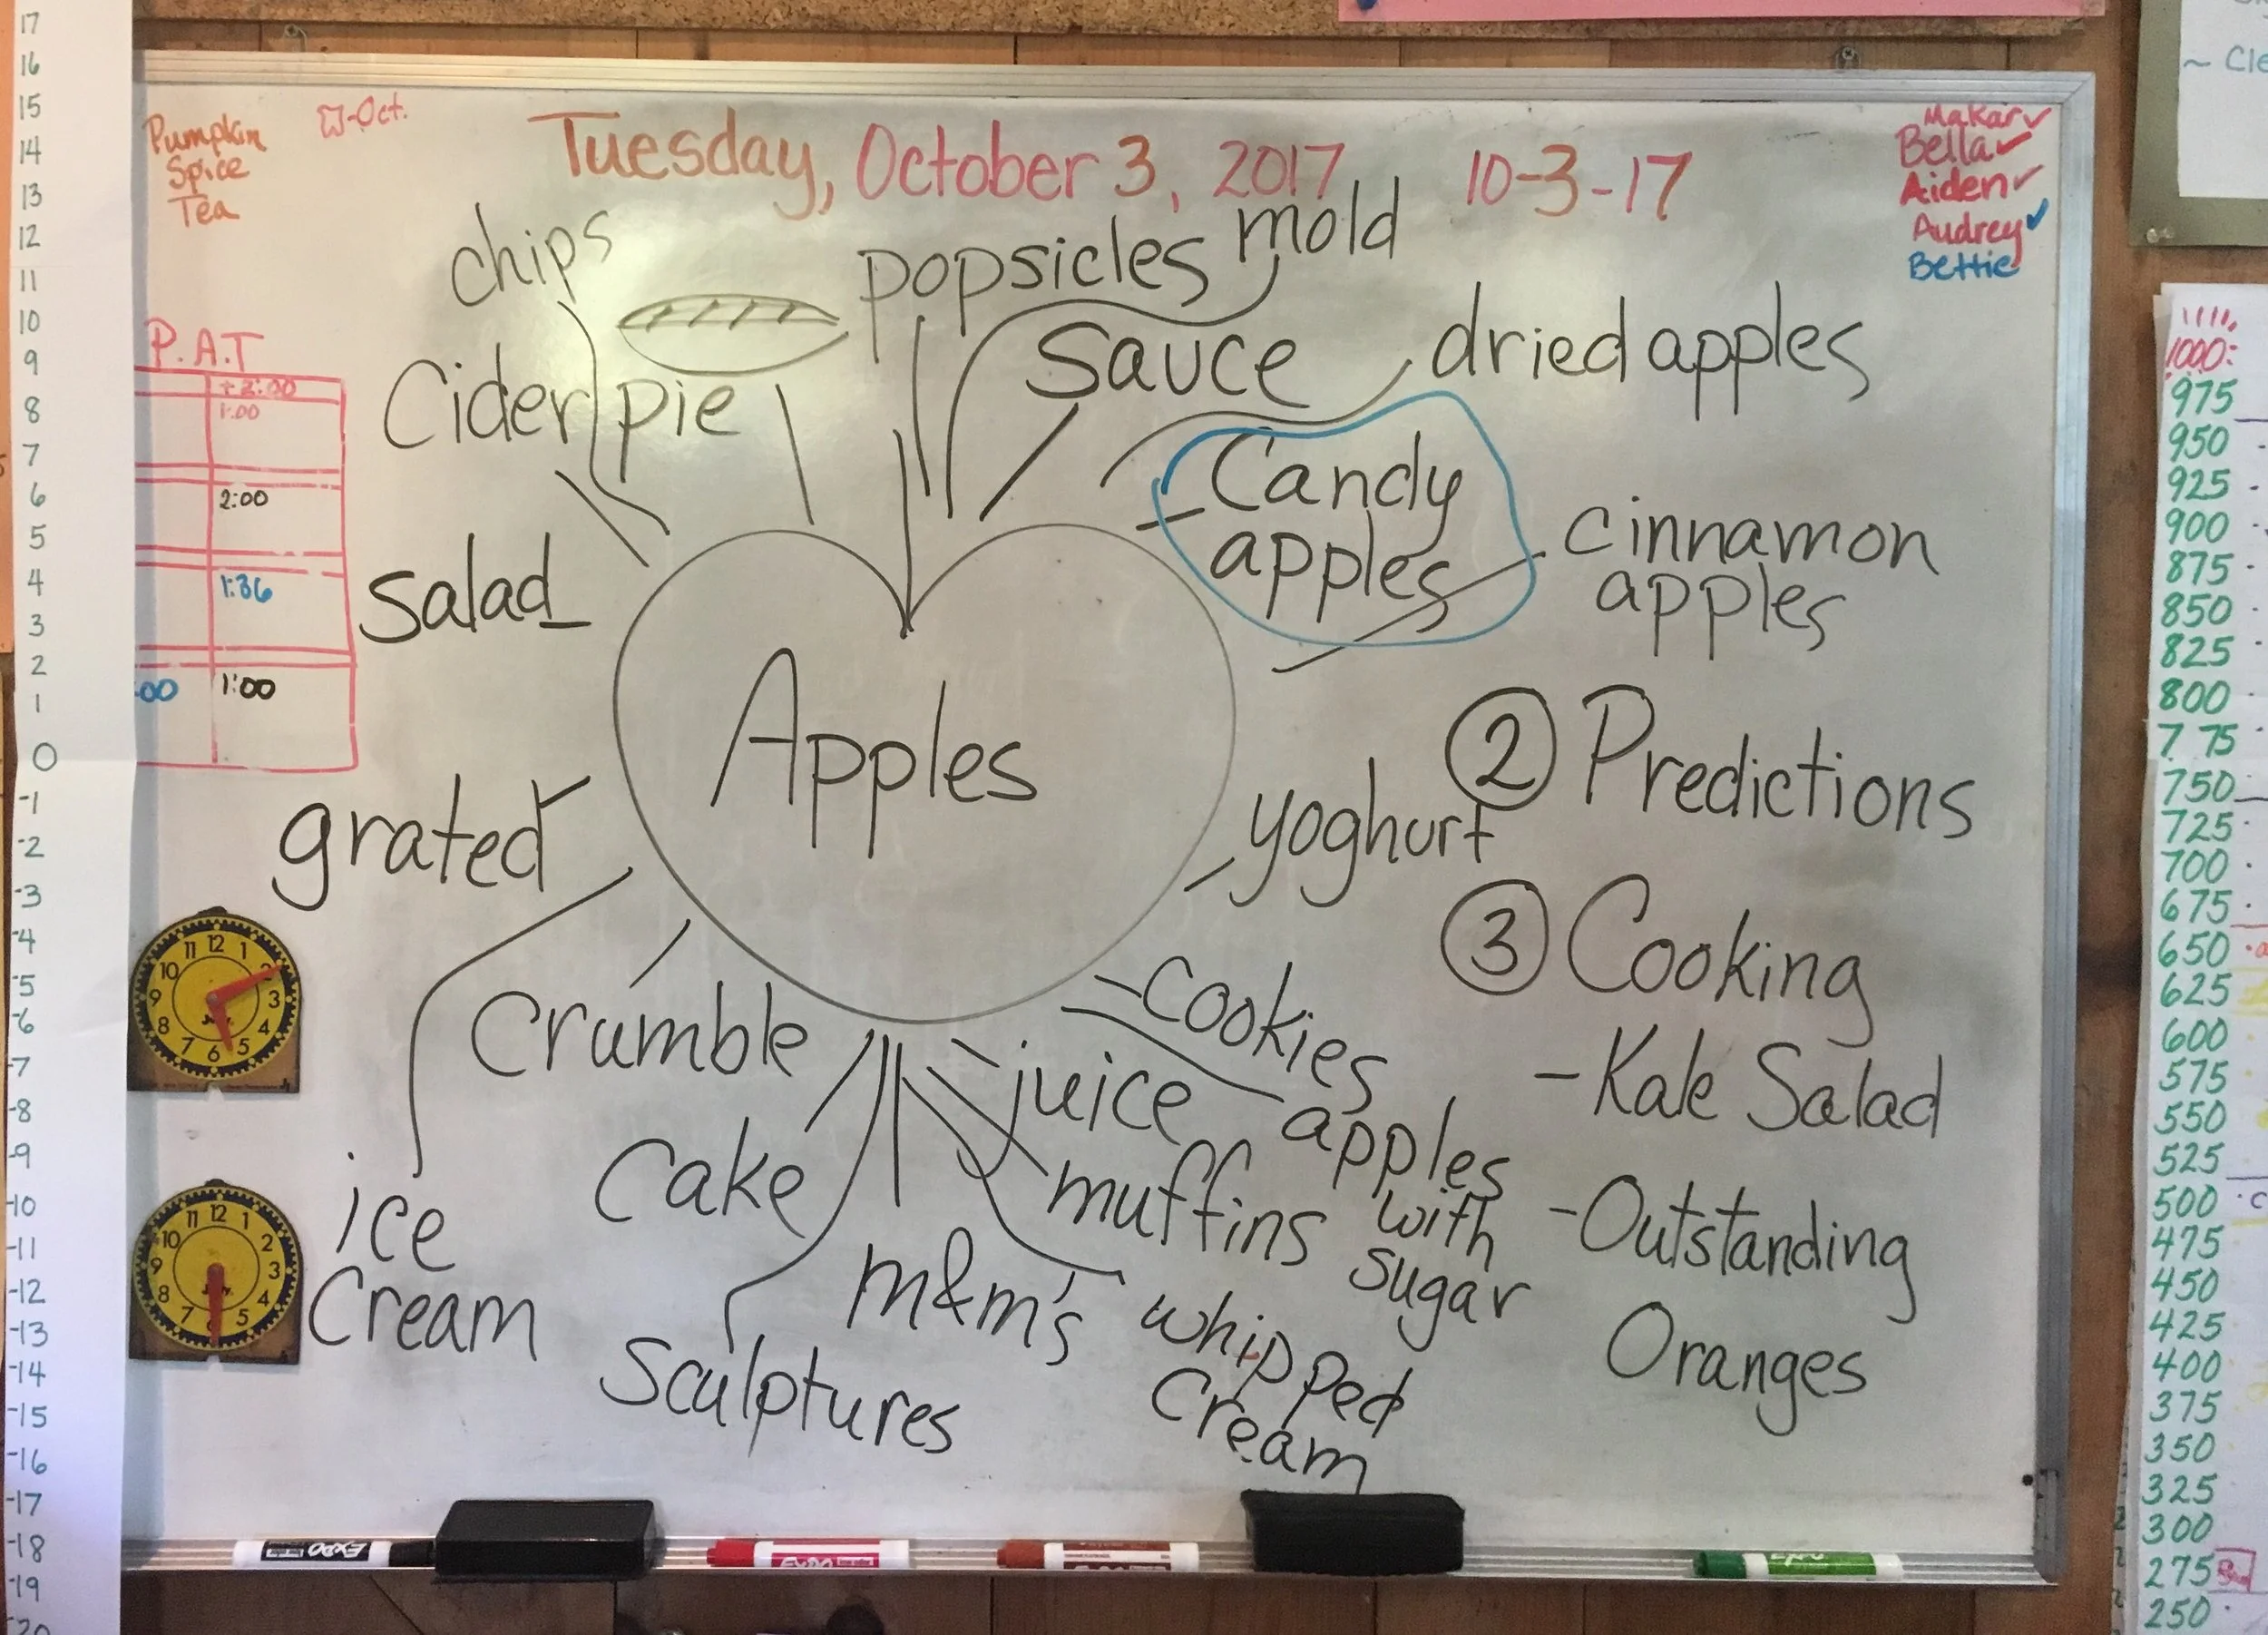 17
16
15
14
13
12
11
10
9
8
7
6
5
4
3
2
1
0
-1
-2
-3
-4
-5
-6
-7
-8
-9
-10
-11
-12
-13
-14
-15
-16
-17
-18
-19
Pumpkin
Spice
Tea
-Oct.
Tuesday, October 3, 2017 10-3-17
Makar ✓
Bella ✓
Aiden ✓
Audrey ✓
Bettie
P.A.T
+2:00
1:00
2:00
1:36
:00 1:00
chips
popsicles
mold
Cider
pie
sauce
dried apples
Candy
apples
cinnamon
apples
Salad
Apples
grated
yoghurt
Crumble
cookies
ice
Cream
cake
juice
apples
with
sugar
muffins
Sculptures
m&m's
whipped
cream
② Predictions
③ Cooking
-Kale Salad
-Outstanding
Oranges
11 12 1
10 2
9 3
8 4
7 6 5
11 12 1
10 2
9 3
8 4
7 6 5
EXPO
EXPO
EXPO
~ Cle
1000
975
950
925
900
875
850
825
800
775
750
725
700
675
650
625
600
575
550
525
500
475
450
425
400
375
350
325
300
275
250